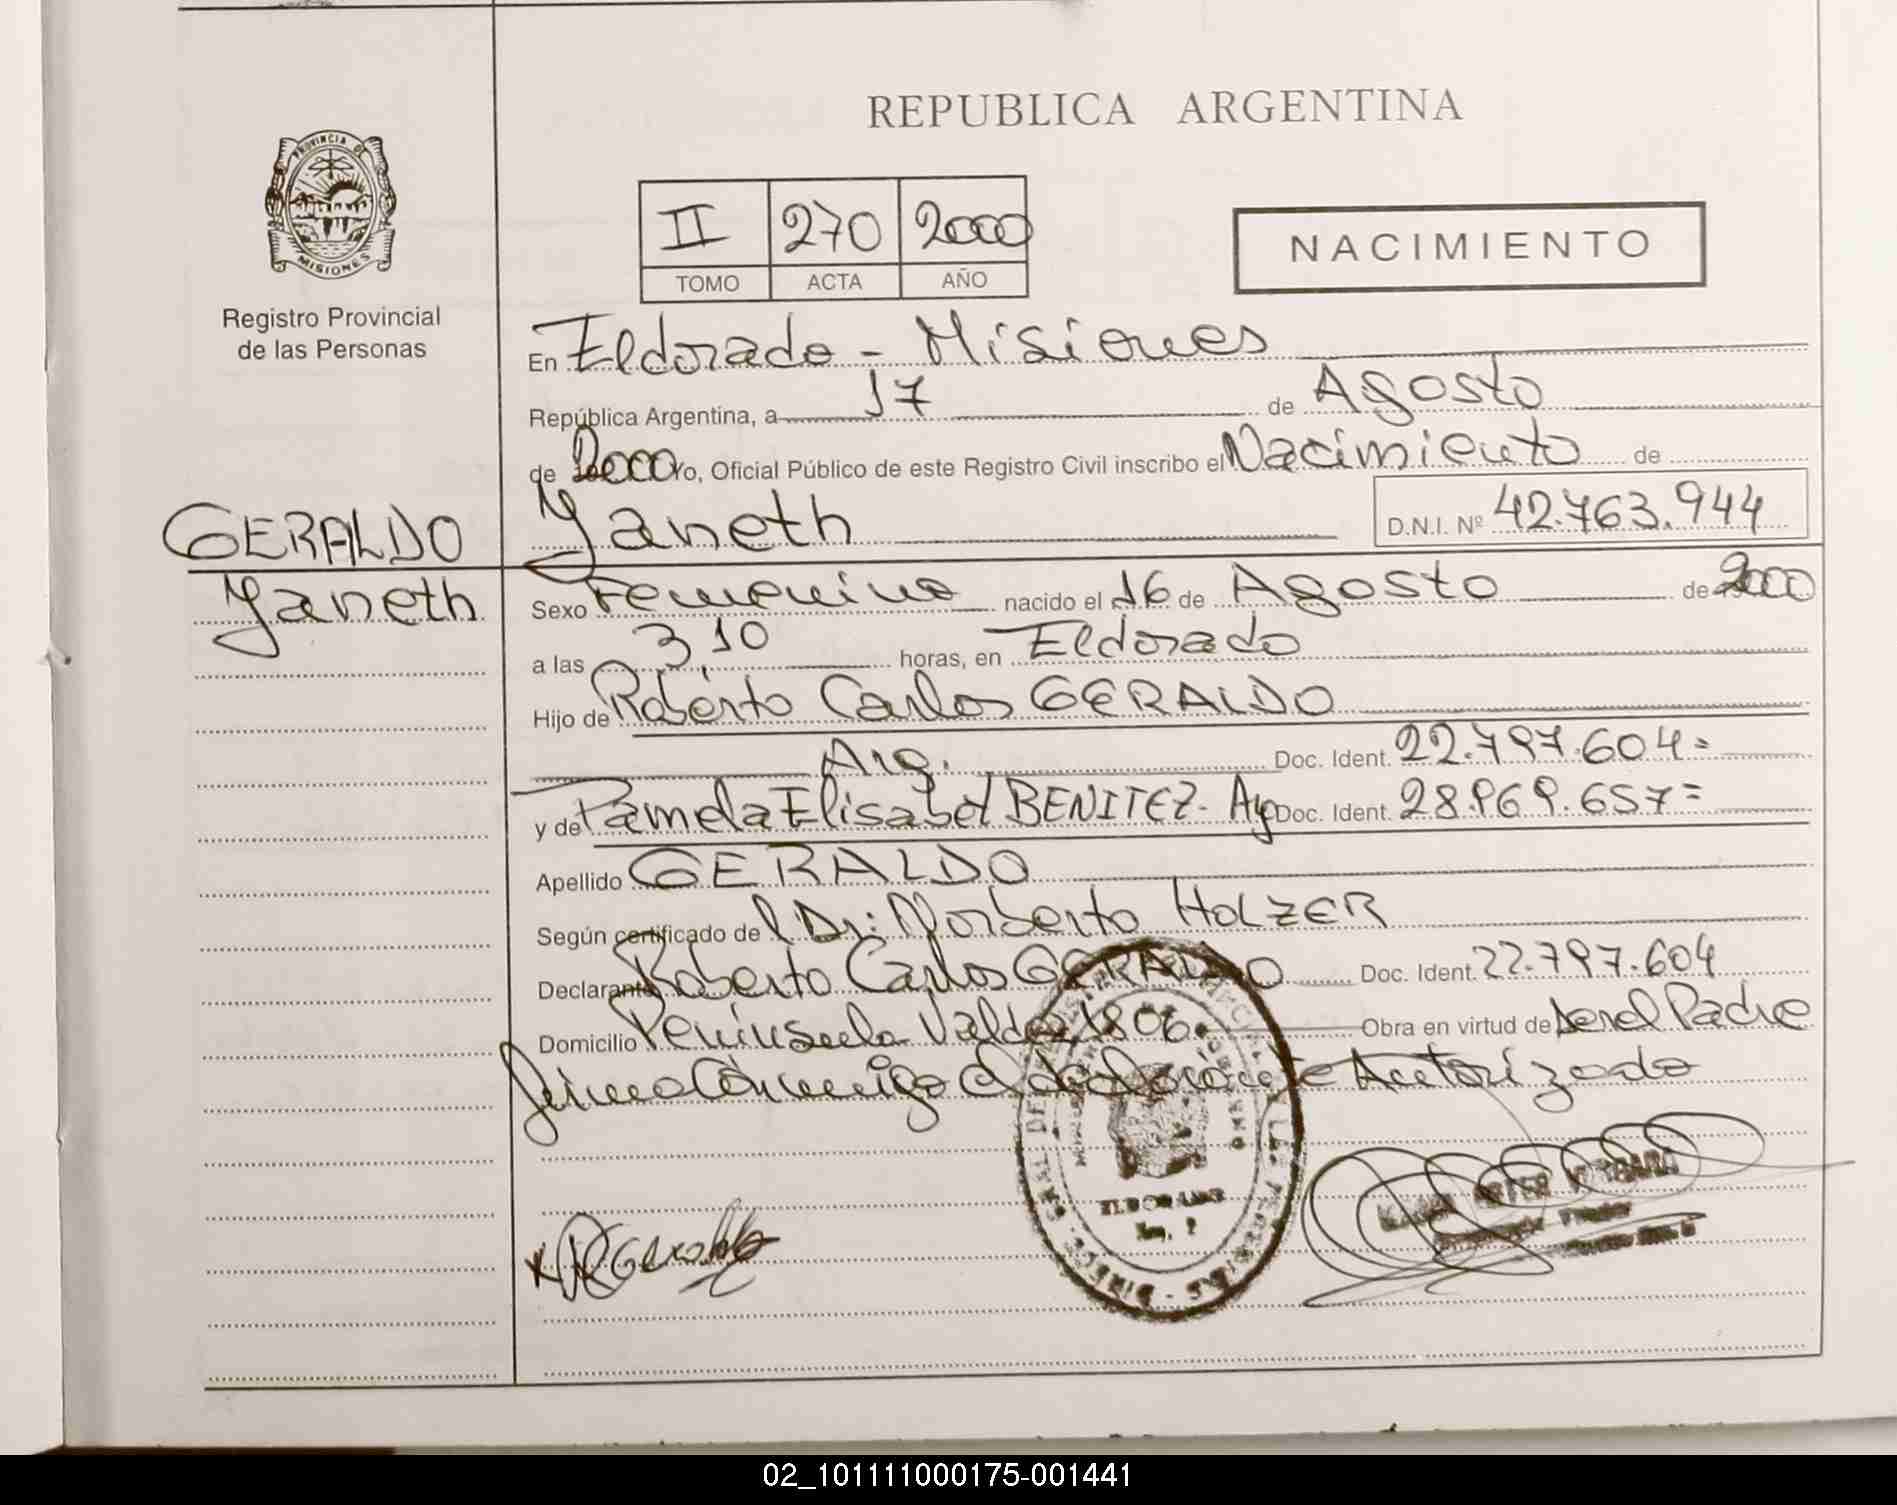 REPUBLICA ARGENTINA
PROVINCIA DE
MISIONES
Registro Provincial
de las Personas
II 270 2000
TOMO ACTA AÑO
NACIMIENTO
En Eldorado - Misiones
República Argentina, a 17 de Agosto
de 2000 Yo, Oficial Público de este Registro Civil inscribo el Nacimiento de
GERALDO
Yaneth
Yaneth D.N.I. Nº 42.763.944
Sexo Femenino nacido el 16 de Agosto de 2000
a las 3,10 horas, en Eldorado
Hijo de Roberto Carlos GERALDO
Arg. Doc. Ident. 22.797.604=
y de Pamela Elisabet BENITEZ- Arg Doc. Ident. 28.969.657=
Apellido GERALDO
Según certificado del Dr: Norberto HOLZER
Declarante Roberto Carlos GERALDO Doc. Ident. 22.797.604
Domicilio Peninsula Valdez 1806. Obra en virtud de ser el Padre
firma Conmigo el declarante Autorizado
ELDORADO
Geraldo
02_101111000175-001441